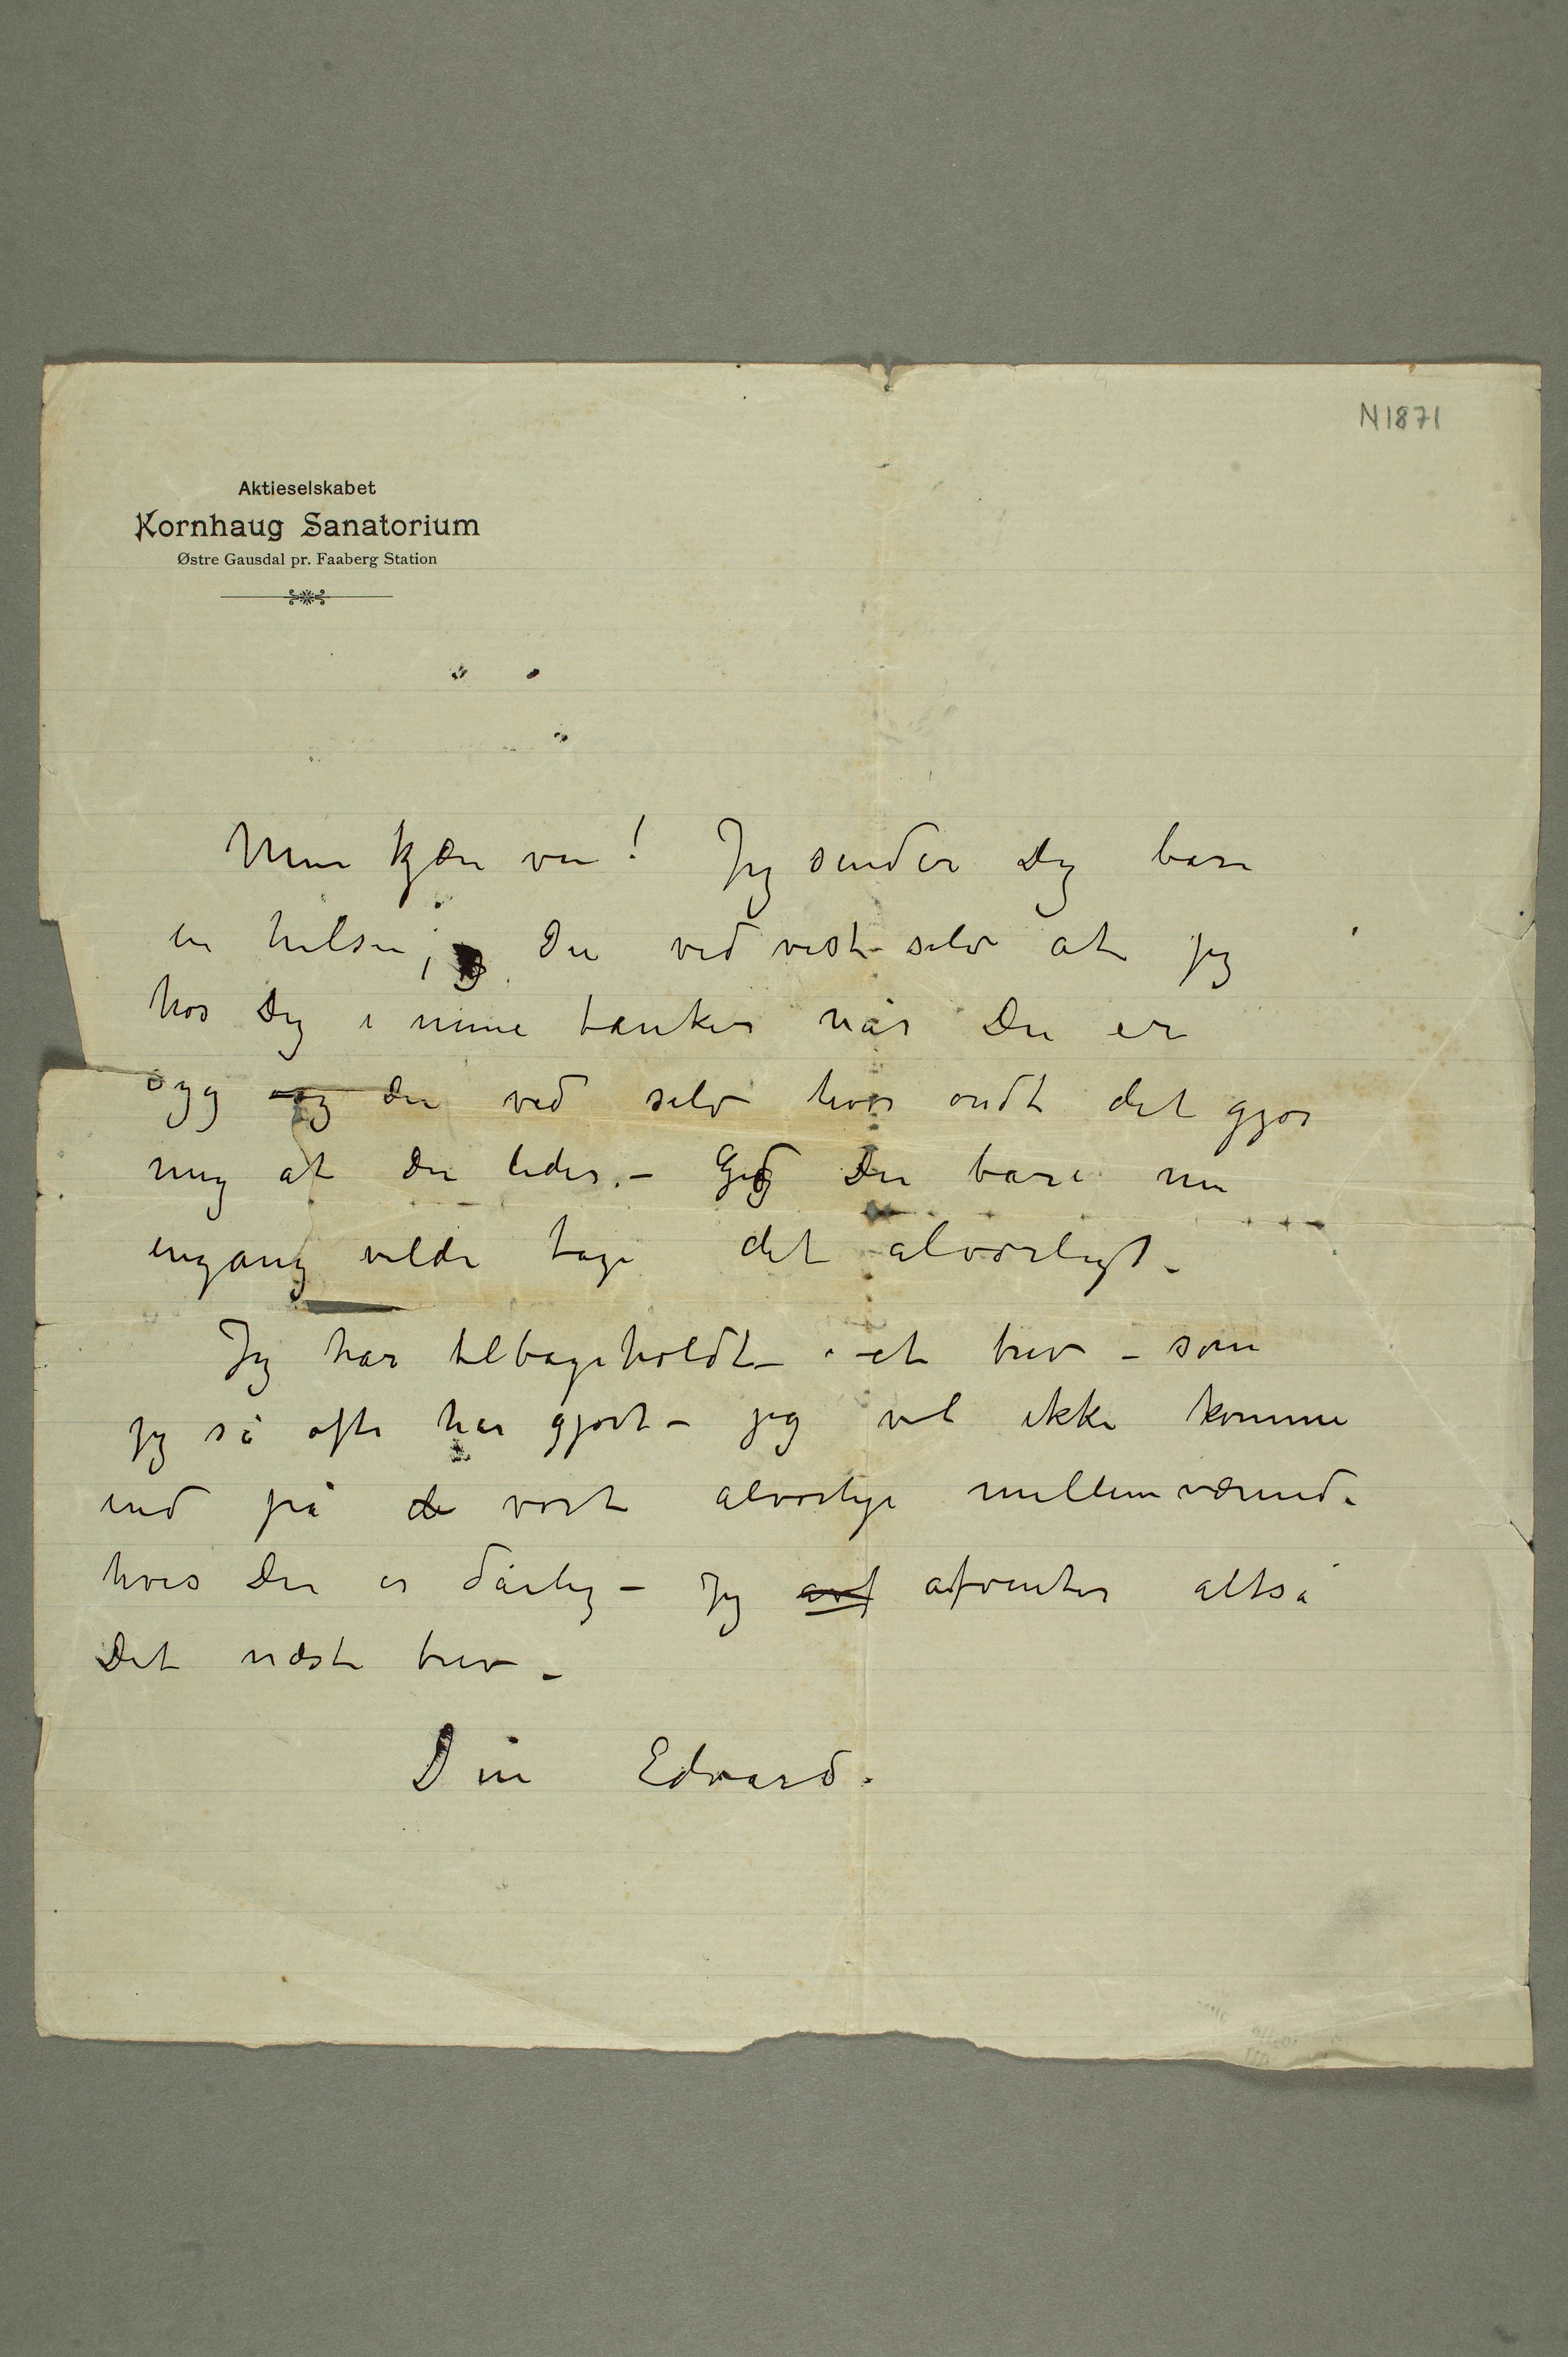 N1871
Aktieselskabet
Kornhaug Sanatorium
Østre Gausdal pr. Faaberg Station
Min kjære ven! Jeg sender Dig bare
en hilsen; Du ved vist selv at jeg
hos Dig i mine tanker når Du er
syg og Du ved selv hvor ondt det gjør
mig at Du lider. – Gid Du bare nu
engang vilde tage det alvorligt –
Jeg har tilbageholdt – et brev – som
jeg så ofte har gjort – jeg vil ikke komme
ind på de vort alvorlige mellemværende
hvis Du er dårlig – Jeg avf afventer altså
Dit næste brev –
Din Edvard.